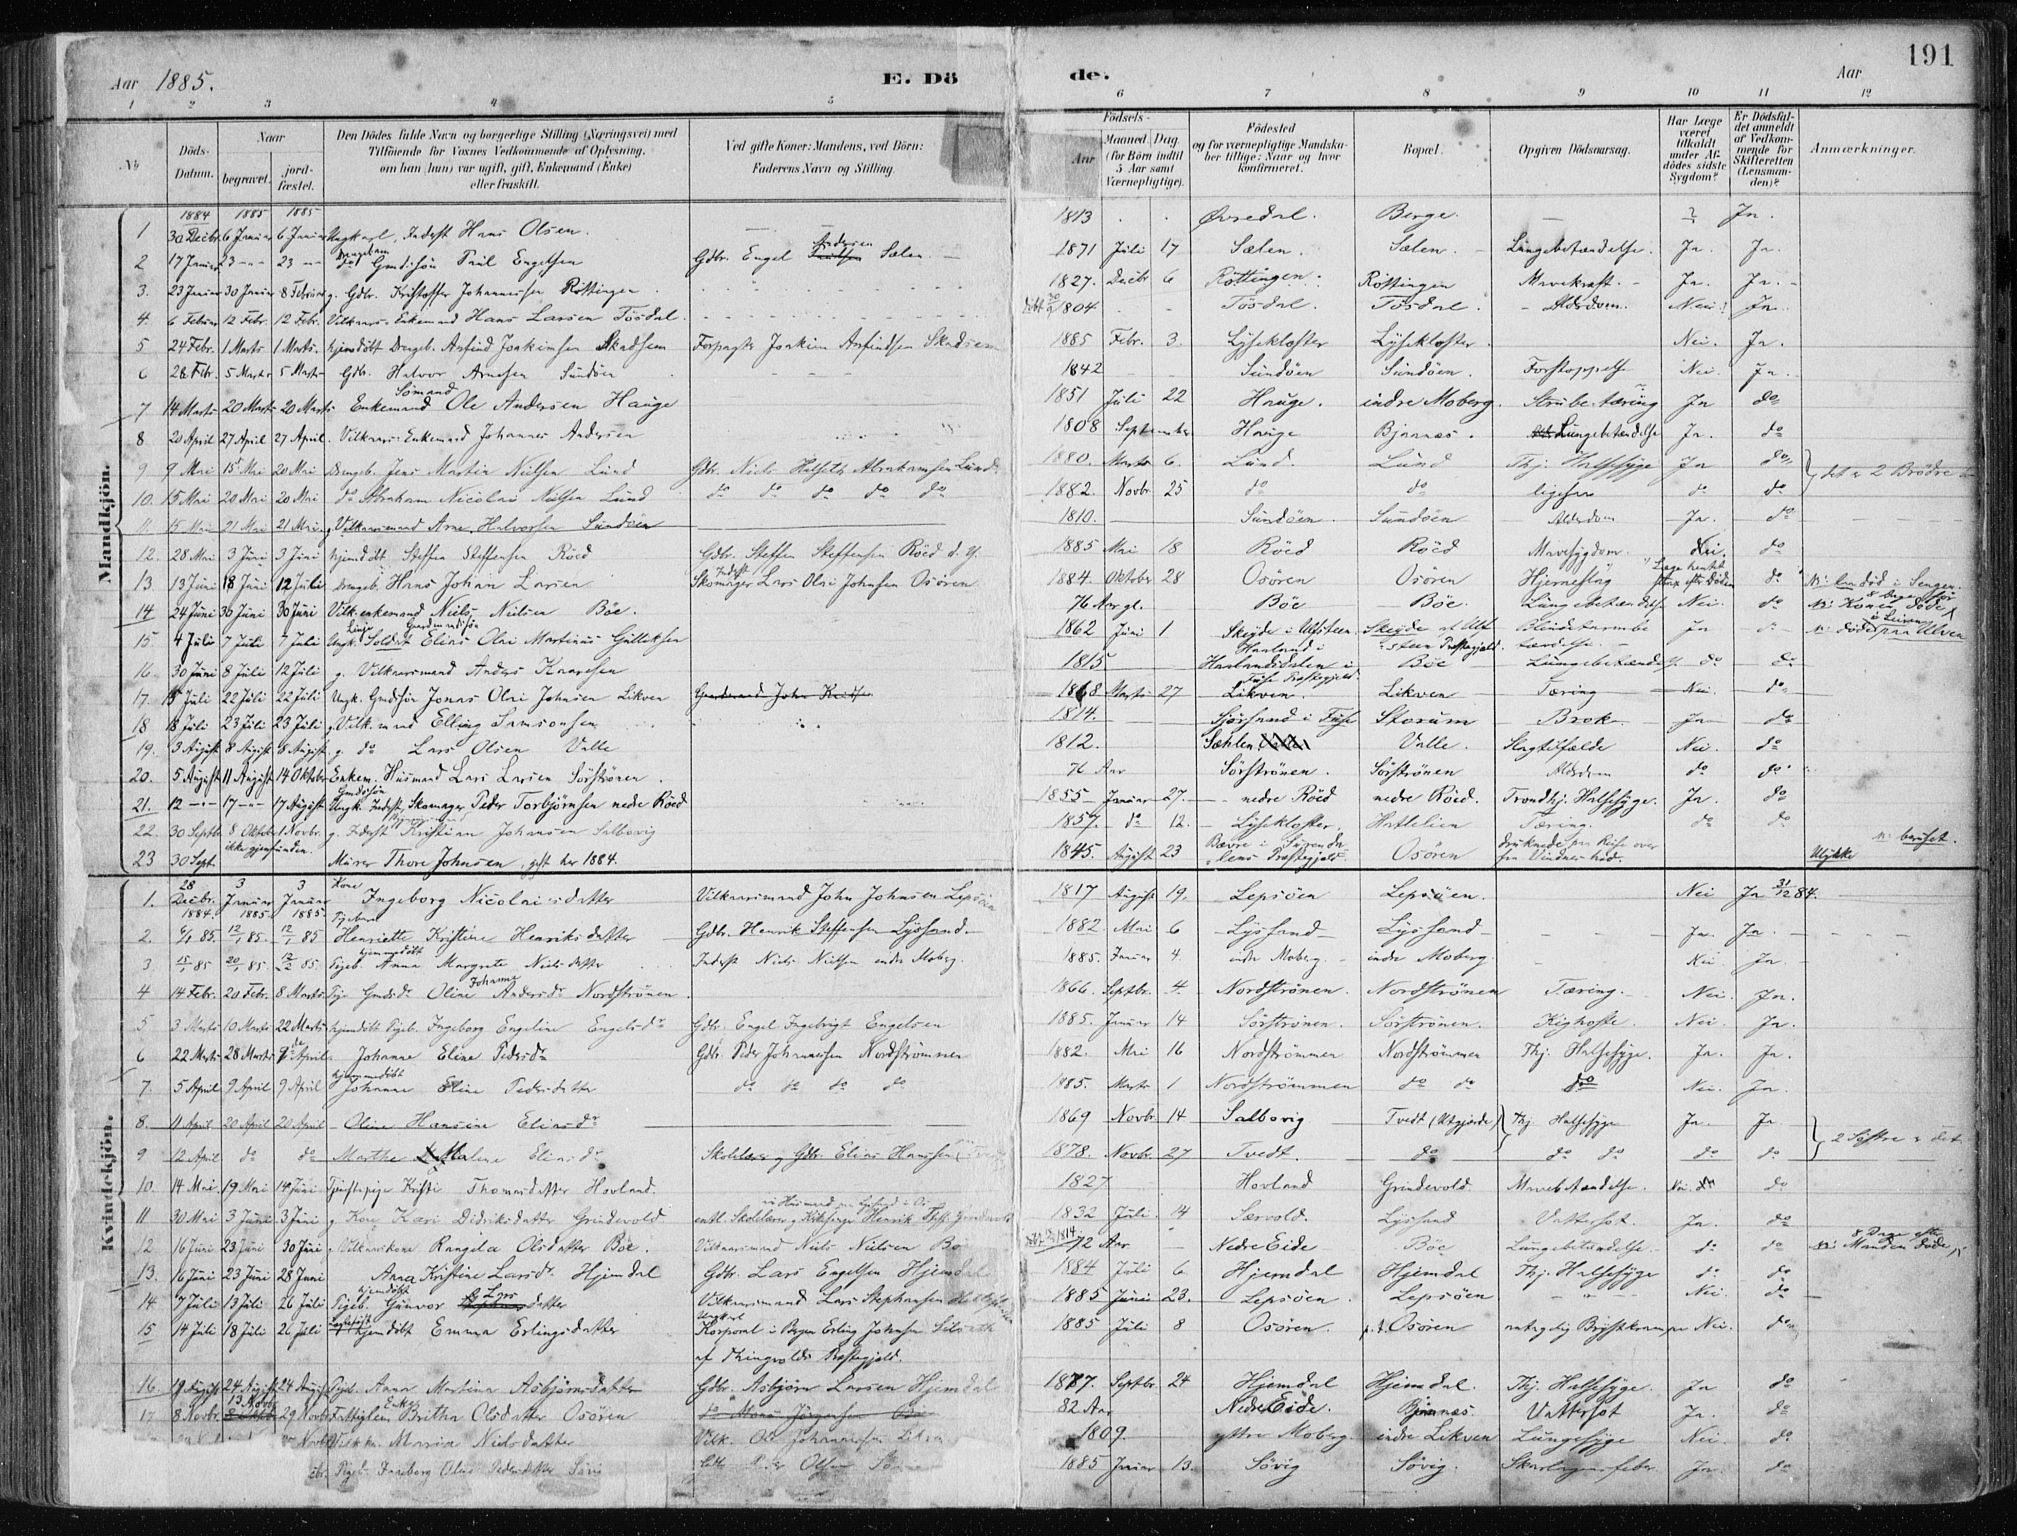 191
Aar 1885. E. Dö de. Aar
1 2 3 4 5 6 7 8 9 10 11 12
No Döds-Datum. Naar begravet. jordfæstet. Den Dödes fulde Navn og borgerlige Stilling (Næringsvei) med Tilföiende for Voxnes Vedkommende af Oplysning, om han (hun) var ugift, gift, Enkemand (Enke) eller fraskilt. Ved gifte Koner: Mandens, ved Börn: Faderens Navn og Stilling. Födsels- Aar Maaned Dag (for Börn indtil 5 Aar samt Værnepligtige). Födested og for værnepligtige Mandskaber tillige: Naar og hvor konfirmeret. Bopæl. Opgiven Dödsaarsag. Har Læge været tilkaldt under Afdödes sidste Sygdom? Er Dödsfaldet anmeldt af Vedkommende for Skifteretten (Lensmanden)? Anmærkninger.
Mandkjön.
1 1884 30 Decbr. 1885 6 Januar 1885 6 Januar Ungkarl, Inderst Hans Olsen. 1813 Øvredal. Berge. — ? Ja.
2 17 Januar 23 -"- 23 -"- Gmdssön Paul Engelsen Gdbr. Engel Andersen Sælen. 1871 Juli 17 Sælen. Sælen. Lungebetændelse. Ja. Ja.
3. 23 Januar 30 Januar 8 Februar g. Gdbr. Kristoffer Johannessen Röttingen 1827. Decbr 6 Röttingen. Röttingen Mavekræft. Ja. Ja.
4. 6 Februar 12 Febr. 12 Febr. Vilkaars-Enkemand Hans Larsen Tösdal. 1804 Tösdal. Tösdal. Alderdom. Nei. Ja.
5 24 Febr. 1 Marts 1 Marts. hjemdöbt Drengeb. Arfind Joakimsen Skadsem Forpagter Joakim Arfindsen Skadsem 1885 Febr. 3. Lysekloster Lysekloster. Nei. Ja.
6 28 Febr. 5 Marts 5 Marts Gdb. Halvor Arnesen Sundöen 1842 Sundöen Sundöen. Forstoppelse Nei. Ja.
7 14 Marts 20 Marts 20 Marts Enkemand Sömand Ole Andersen Hauge 1851 Juli 22 Hauge. indre Moberg. Strubetæring Ja do
8 20 April 27 April 27 April. Vilkaars-Enkemand Johannes Andersen 1808 September Hauge Bjønnæs. Lungebetændelse Ja. do
9 9 Mai 15 Mai 20 Mai Drengeb. Jens Martin Nielsen Lund Gdb. Niels Abrahamsen Lund. 1880. Marts 6. Lund. Lund Thj. Halssyge Ja do det er 2 Brödre
10. 15 Mai 20 Mai 20 Mai do Abraham Nicolai Nielsen Lund do do do do do 1882. Novbr. 25 do do ligesaa do do
11. 15 Mai 21 Mai 21 Mai. g. Vilkaarsmand Arne Halvorsen Sundöen 1810. Sundöen Sundöen Alderdom Ja. do
12. 28 Mai 3 Juni 3 Juni hjemdöbt Steffen Steffensen Röed Gdb. Steffen Steffensen Röed d. y. 1885 Mai 18 Röed Röed Mavesygdom. Nei. do
13. 13 Juni 18 Juni 12 Juli Drengeb. Hans Johan Larsen Inderst Skomager Lars Olai Johnsen Osören 1884. Oktober 28 Osören Osören Hjerneslag Læge hentet strax efter Döden do
14 24 Juni 30 Juni 30 Juni Vilk. enkemand Niels Nielsen Böe. 76 Aar gl. Böe Böe. Lungebetændelse Nei. do
15. 4 Juli 7 Juli 7 Juli Ungk. Linje Soldat Elias Olai Martinus Gulleksen 1862 Juni 1 Ja
16. 30 Juni 8 Juli 12 Juli g. Vilkaarsmand Anders Knudsen 1815 Böe Lungebetændelse do do
17. 18 Juli 22 Juli 22 Juli Ungk. Gmdssön Jonas Olai Johnsen Likven 1868 Marts 27 Likven. Likven Tæring Nei. do
18 18 Juli 23 Juli 23 Juli g. Vilk.mand Elling Samsonsen 1814. i Fuse Storum Brok Ja do
19. 3 August 8 August 8 August g. do Lars Olsen Valle 1812. Sæhlen Valle. Slagtilfælde Nei. do
20. 5 August 11 August 14 Oktober Enkem. Husmand Lars Larsen Sörströnen. 76 Aar Sörströnen. Sörströnen Alderdom do do
21. 12 -"- 17 -"- 17 August Ungk. Gmdssön Inderst, Skomager Peder Torbjörnsen nedre Röed 1855 Januar 27. nedre Röed nedre Röed. Trondhj. Halssyge. Ja. do
22. 30 Septbr. 8 Oktober 1 Novbr. g. Inderst Kristian Johansen Salbovig 1857. do 12. Lysekloster. Hattelien Tæring. do do
23 30 Sept. ikke gjenfunden. Murer Thore Johnsen, gift her 1884. 1845. August 23 Bævre i Surendalens Præstegjeld. Osören druknede paa Reise over fra Ulykke beruset.
Kvindekjön.
1. 28 Decbr. 1884. 3 Januar 1885. 3 Januar 1885. Kone Ingeborg Nicolaisdatter Vilkaarsmand John Johnsen Lepsöen 1817 August 19. Lepsöen Lepsöen. Nei Ja 31/12 84.
2. 6/1 85. 12/1 85. 12/1 85 Pigebarn Henriette Kristine Henriksdatter Gdbr. Henrik Steffensen Lysand. 1882. Mai 6 Lysand Lysand Ja. Ja.
3. 15/1 85 20/1 85. 12/2 85. Pigeb. hjemmedöbt Anna Margrete Nielsdatter Inderst Niels Nielsen indre Moberg. 1885. Januar 4. indre Moberg. indre Moberg. Nei. Ja.
4 14 Febr. 20 Febr. 8 Marts Pige Gmdsdr. Oline Johanne Andersdr Nordströnen. 1866. Septbr. 4. Nordströnen. Nordströnen Tæring. Nei. Ja.
5 3 Marts 10 Marts 22 Marts hjemdöbt Pigeb. Ingeborg Engeline Engelsdr Gdb. Engel Ingebrigt Engelsen 1885. Januar 14 Sörströnen. Sörströnen. Kighoste. Nei. Ja.
6 22 Marts 28 Marts April. Johanne Eline Pedersdr Gdb. Peder Johannessen Nordströmmen 1882. Mai 16 Nordströmmen Nordströmmen Thj. Halssyge. Ja. Ja.
7. 5 April 9 April 9 April hjemmedöbt Johanne Eline Pedersdatter do do do do 1885. Marts 1 Nordströmmen do do do Nei. Ja.
8. 11 April 20 April 20 April Oline Hansine Eliasdr 1869 Novbr. 14 Salbovig Tvedt (Utgjærde) Thj. Halssyge Ja. Ja 2 Söstre
9 12 April do do Marthe Malene Eliasdr Skolelærer og Gdb. Elias Hanssen 1878. Novbr. 27 Tvedt. do do do do do
10. 14 Mai 19 Mai 14 Juni Tjenestepige Kristi Thomasdatter Hovland. 1827 Hovland Grindevold. Mavebetændelse. Nei. do
11 30 Mai 3 Juni 3 Juni g. Kone Kari Didriksdatter Grindevold entl. Skolelærer og Kirkesanger Henrik 1832 Juli. 14 Særvold. Lysand Vattersot. Ja. do
12 16 Juni 23 Juni 30 Juni g. Vilkaarskone Rangela Olsdatter Böe. Vilkaarsmand Niels Nielsen Bö 72 Aar Nedre Eide Böe Lungebetændelse. do do 8 Dage efter Manden döde
13. 16 Juni 23 Juni 28 Juni Anna Kristine Larsdr. Hjemdal Gdb. Lars Engelsen Hjemdal 1884 Juli 6 Hjemdal Hjemdal Thj. Halssyge do do
14 7 Juli 13 Juli 26 Juli Pigeb. hjemdöbt Gunvor Larsdatter Vilkaarsmand Lars Stephansen 1885 Juni 23. Lepsöen. Lepsöen Nei. do
15 14 Juli 18 Juli 26 Juli hjemdöbt Emma Erlingsdatter Ungkarl Korporal i Bergen Erling Johnsen
af Thingvolds Præstegjeld. 1885 Juli 8 Osören. p. t. Osören Brystkrampe Nei. do
16. 19 August 24 August 24 August Pigeb. Anna Martina Asbjörnsdatter Gdbr. Asbjörn Larsen Hjemdal 1877. Septbr. 24 Hjemdal Hjemdal. Thj. Halssyge. Ja do
17 8 Novbr. 13 Novbr. 29 Novbr. Fattiglem Enke Britha Olsdatter Osören 82 Aar Nedre Eide. Bjønnæs. Vattersot Ja. do
Novbr. Maria Nielsdatter Vilk. Ole Johannessen Likven 1809. yttre Moberg. indre Likven Lungesyge Nei. do
Pigeb. Ingeborg Oline Pedersdatter Sövig Gdb. Peder Olsen 1885 Januar 13. Sövig Sövig. Skarlagensfeber Ja. do